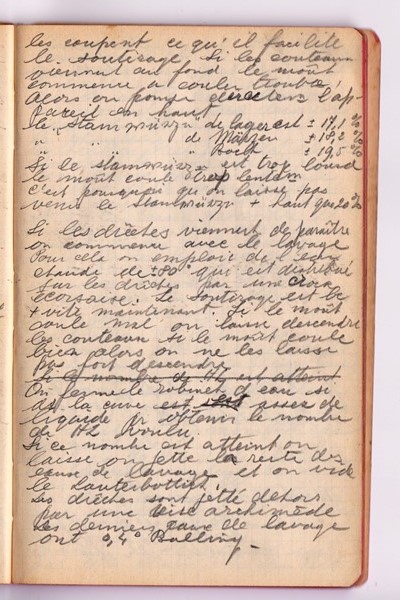 les coupent ce qu'il facilite
le soutirage. Si les couteaux
viennent au fond le moût
commence à couler trouble,
Alors on pousse l'ap-
pareil en haut
le Stammwürze de lager est ± 17,1 %
" de Märzen ± 18,2 %
" " Bock ± 19,5 %
Si le Stammwürze est trop lourd
le moût coule trop lentem
c'est pourquoi qu'on laisse pas
venir le Stammwürze + haut que 20 %
Si les drêches viennent de paraître
on commence avec le lavage
Pour cela on emploie de l'eau
chaude de ± 80° qui est distribué
sur les drêches par une croix
écossaise. Le soutirage est le
+ vite maintenant. Si le moût
coule mal on laisse descendre
les couteaux si le moût coule
bien alors on ne les laisse
pas fort descendre.
Si le nombre de Hl est atteint
On ferme le robinet d'eau si
de la cuve est assez de
liquide pr obtenir le nombre
de Hl voulu.
Si ce nombre est atteint on
laisse on jette la reste des
eaux de lavage et on vide
le Lauterbottich.
Les drêches sont jetté dehors
par une vise archimède
Les derniers eaux de lavage
ont 0,4° Balling.